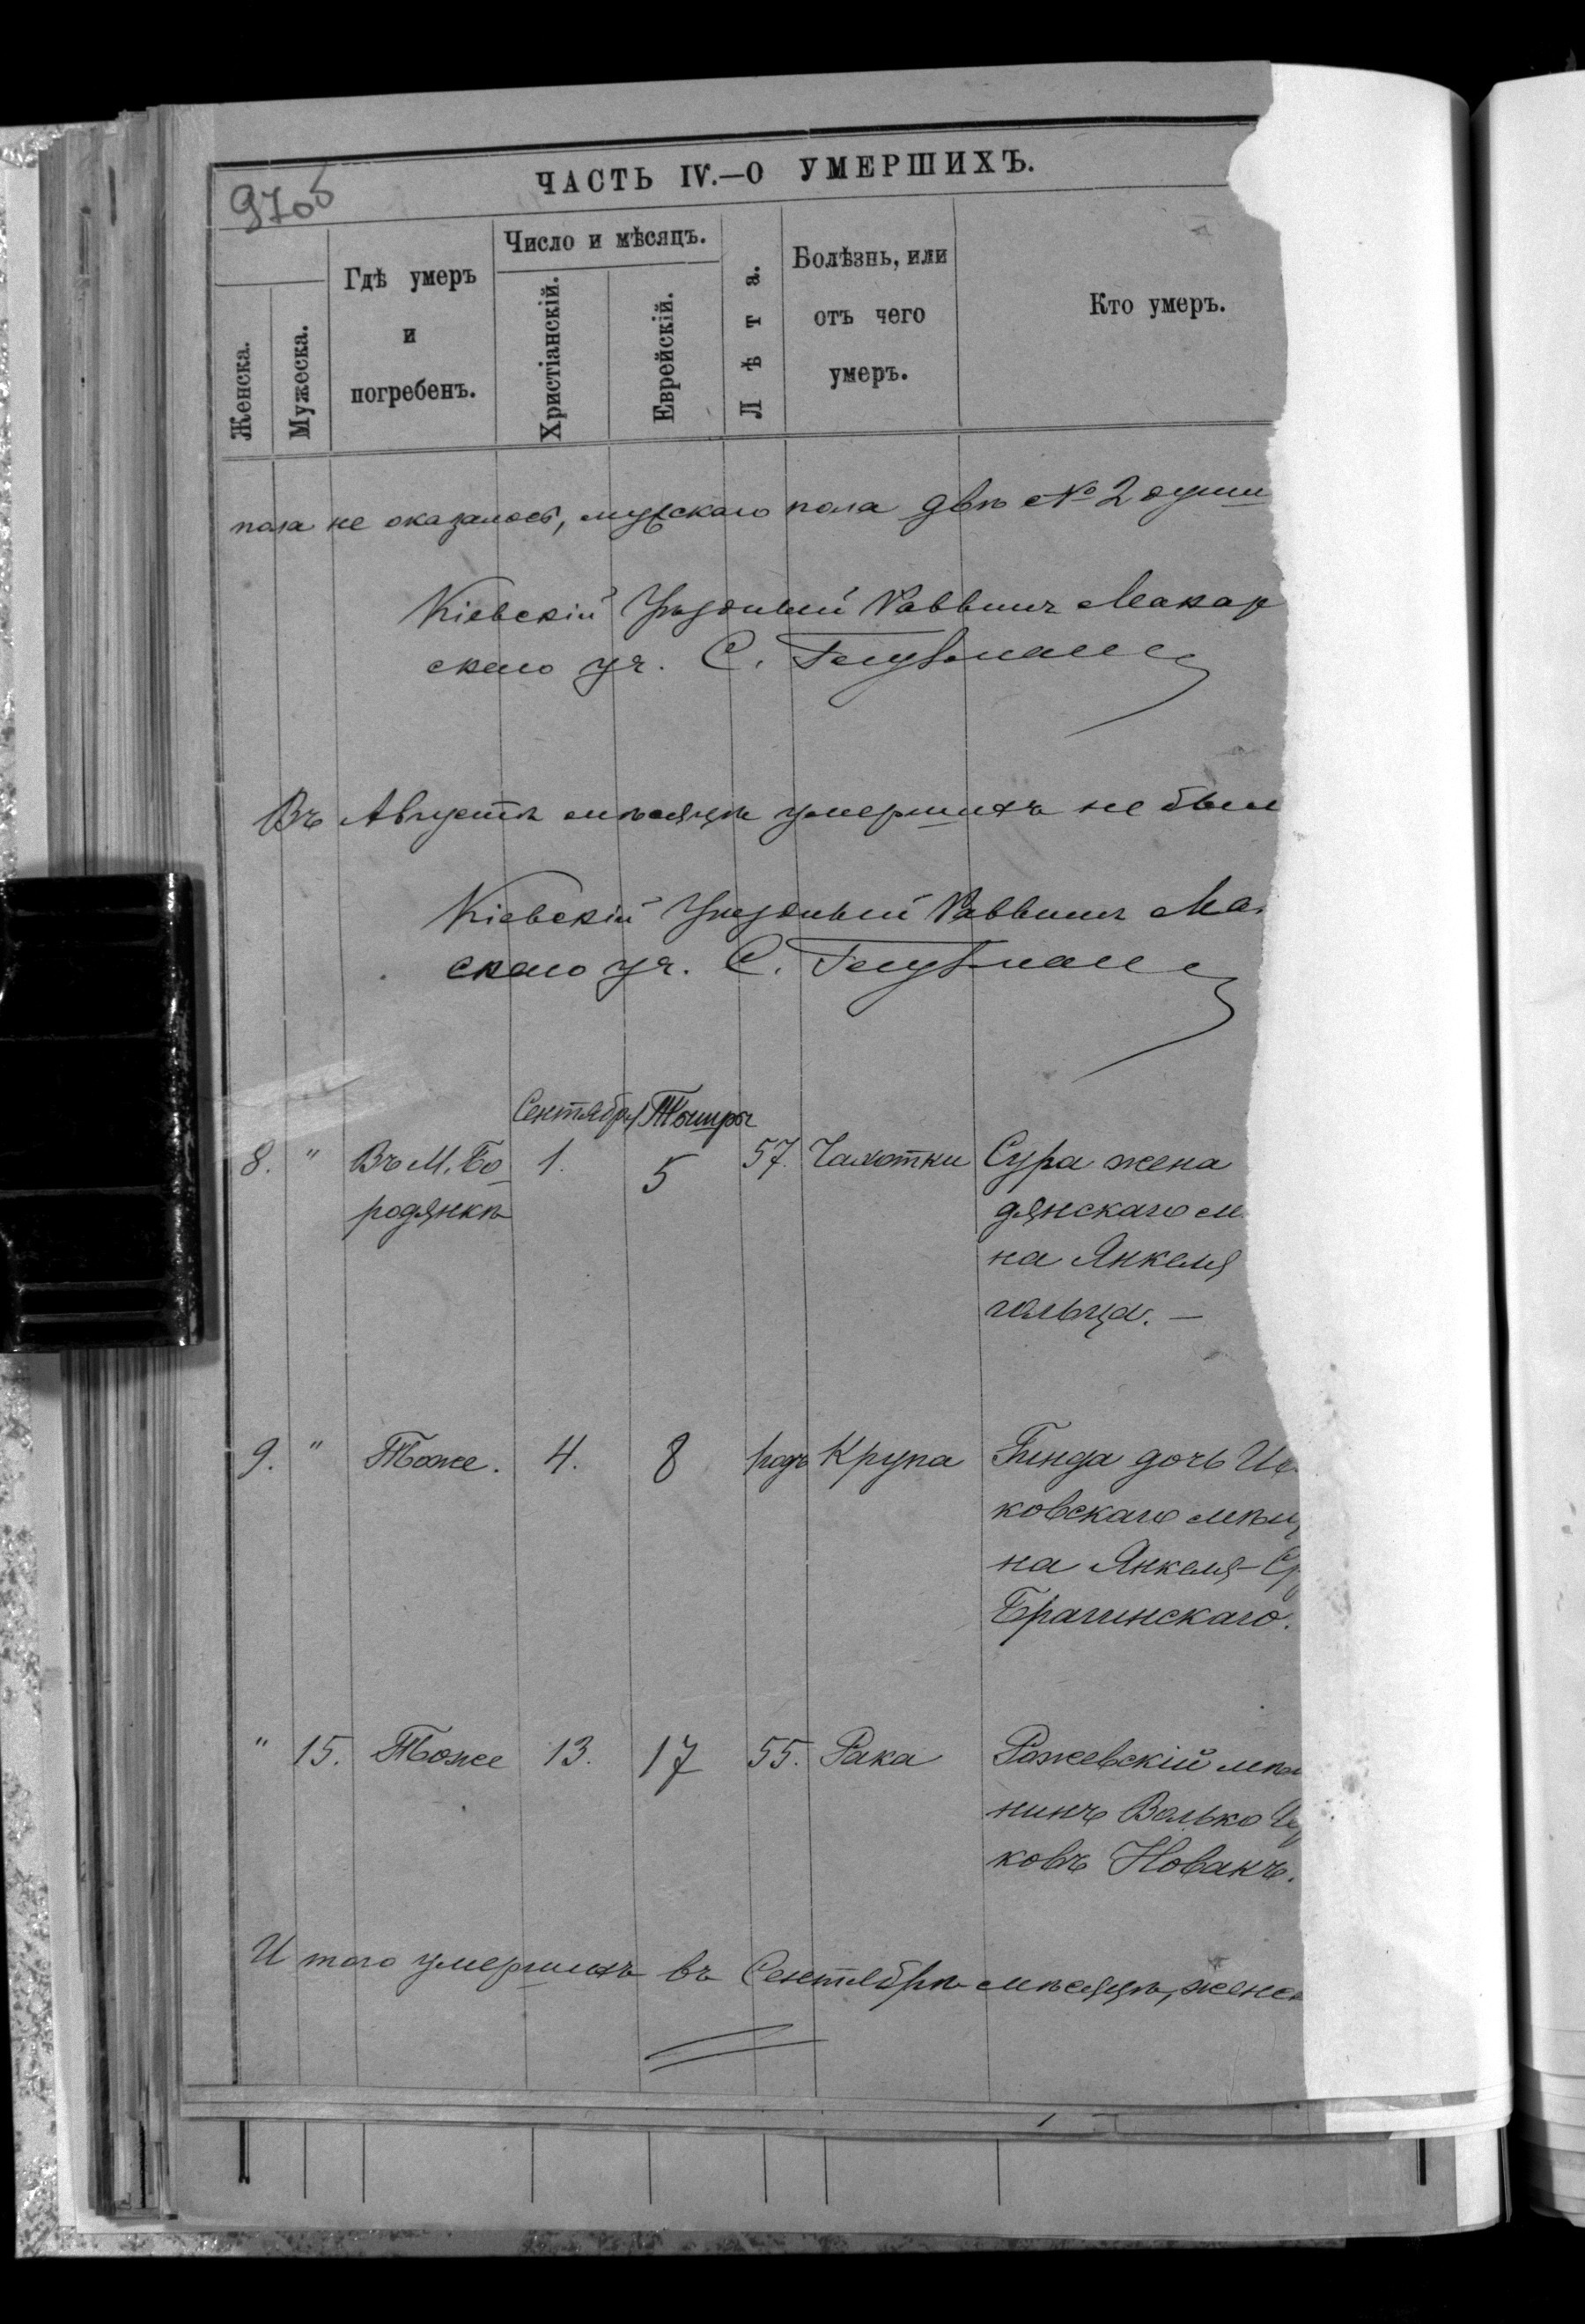 970б
ЧАСТЬ IV.—О УМЕРШИХЪ.
Женска.
Мужеска.
Гдѣ умеръ
и
погребенъ.
Число и мѣсяцъ.
Христіанскій.
Еврейскій.
Лѣта.
Болѣзнь, или
отъ чего
умеръ.
Кто умеръ.
пола не оказалось, мужскаго пола двѣ № 2 души
Кіевскій Уѣздный Раввинъ Макар
скаго уч. С.
Въ Августѣ мѣсяцѣ умершихъ не был
Кіевскій Уѣздный Раввинъ Ма
скаго уч. С.
Сентября Тишри
8. " Въ М. Бо 1. 5 57. Чахотки Сура жена
родянкѣ дянскаго м
на Янкеля
гольца. —
9. " Тоже. 4. 8 1 годъ Крупа Гинда дочь
ковскаго мѣщ
на Янкеля-Ср
Брагинскаго.
" 15. Тоже 13. 17 55. Рака Рожевскій мѣщ
нинъ Волько
ковъ Новакъ.
И того умершихъ въ Сентябрѣ мѣсяцѣ, женск